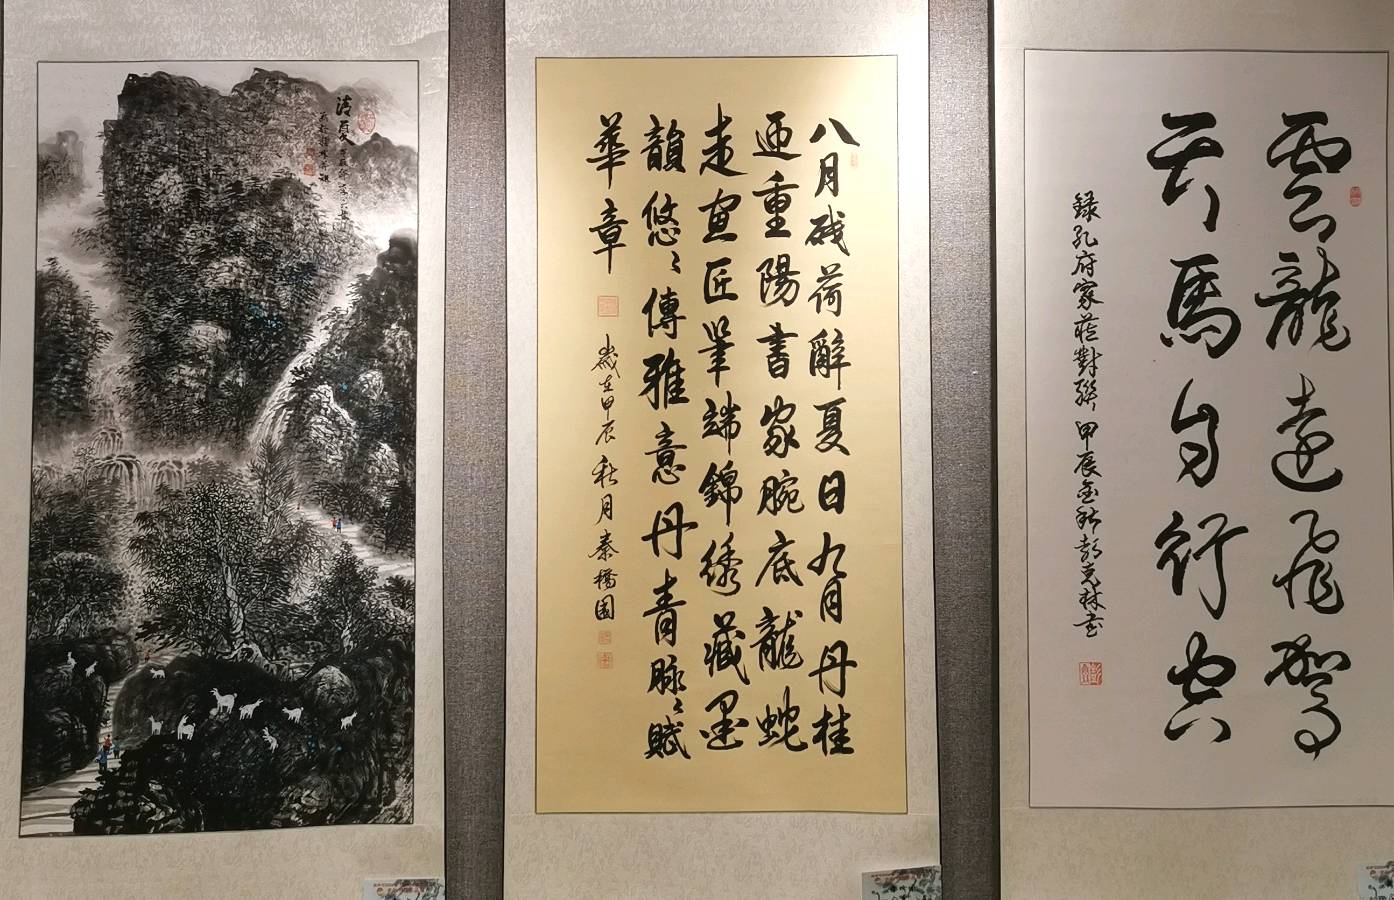 清夏
八月残荷解夏日九月丹桂
迎重陽書家腕底龍蛇
走宣匠筆端錦绣藏墨
韻悠〻傳雅意丹青脉〻賦
華章
歲在甲辰秋月秦橋園
雲龍遠飛駕
天馬自行空
録孔府家藏對聯甲辰金秋彭克林書